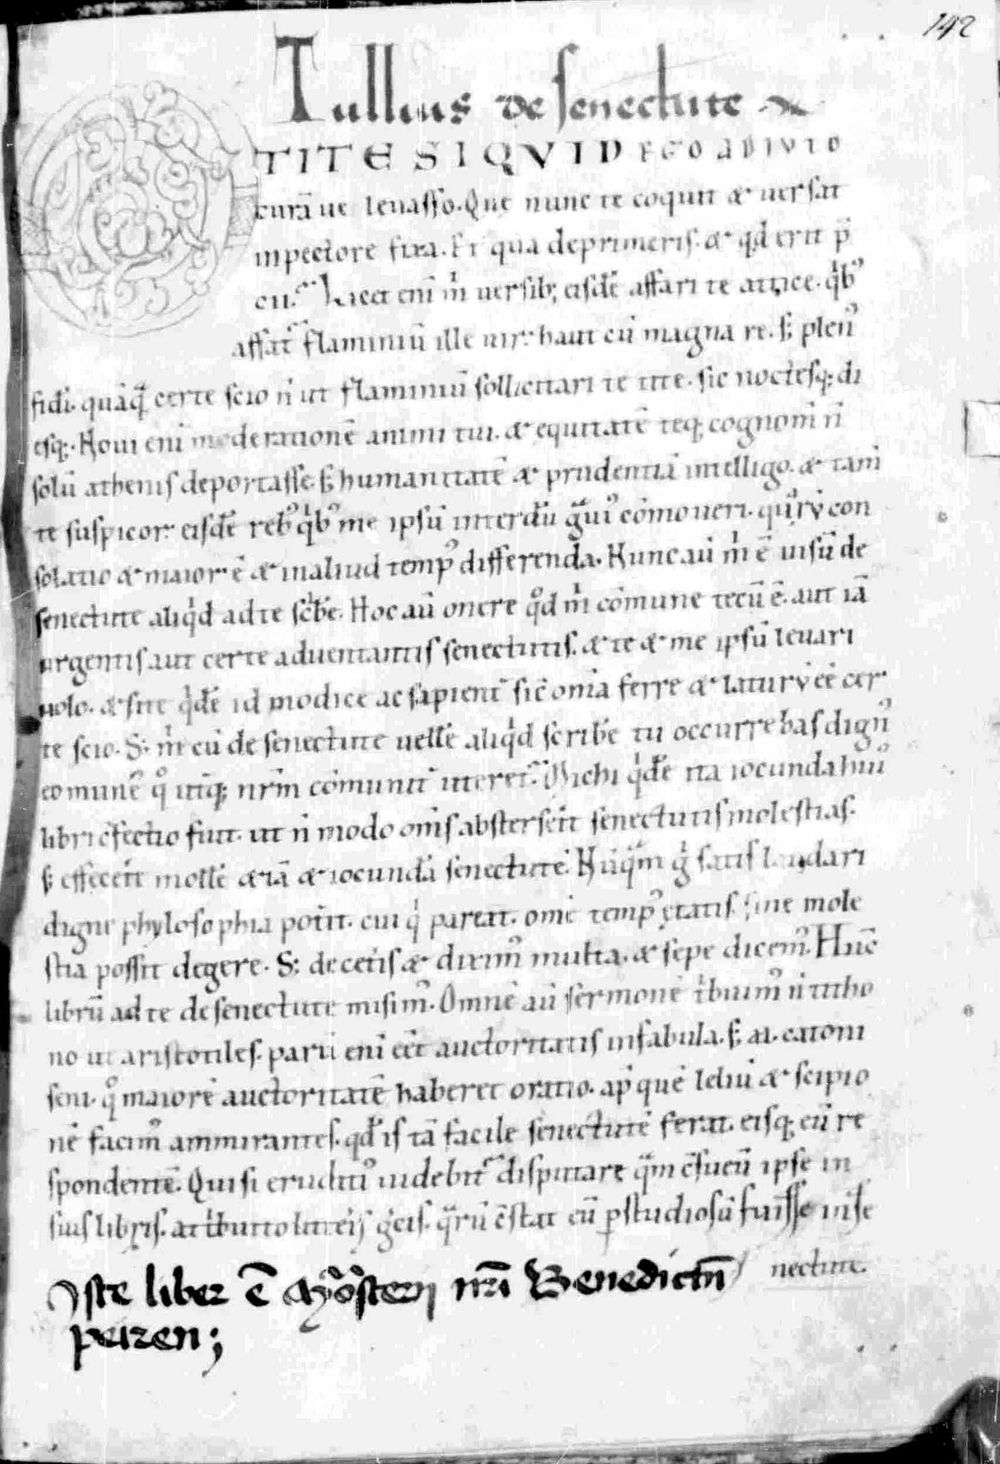 142
Tullius de senectute
O TITE SIQVID EGO ADIVTO
curā ue leuasso. Que nunc te coquit & uersat
inpectore fixa. Et qua deprimeris. & qđ erit p̄
cii. Licet eni m̄ uersib; eisdē affari te attice. qͥbꝰ
affat̄ flamminiū ille uir. haut cū magna re. s; plenꝰ
fidi. quāq̄ certe scio n̄ ut flamminiū sollicitari te tite. sic noctesq; di
esq;. Noui eni moderationē animi tui. & equitatē teq; cognom̄ n̄
solū athenis deportasse. s; humanitatē & prudentiā intelligo. & tam̄
te suspicor. eisdē rebꝰ qͥbꝰ me ipsū interdū gͣuiꝰ cōmoueri. quͦrū con
solatio & maior ē & inaliud tempꝰ differenda. Nunc aū m̄ ē uisū de
senectute aliqͥd adte scͥbē. Hoc aū onere qͦd m̄ cōmune tecū ē. aut iā
urgentis aut certe aduentantis senectutis. & te & me ipsū leuari
uolo. & si te qͥdē id modice ac sapient̄ sic̄ omīa ferre & laturū eē cer
te scio. S; m̄ cū de senectute uellē aliqͥd scribē tu occurrebas dignꝰ
eo munē qͦ utiq; nr̄m cōmunit̄ uteret̄. Michi qͥdē ita iocunda huiꝰ
libri cfectio fuit. ut n̄ modo om̄is absterserit senectutis molestias.
s; effecerit mollē & iā & iocundā senectutē. Nūqͣm gͥ satis laudari
digne phylosophia poterit. cui qͥ pareat. omē tempꝰ ętatis sine mole
stia possit degere. S; de cetis & diximꝰ multa. & sepe dicemꝰ. Hunc
librū ad te de senectute misimꝰ. Omnē aū sermonē tͥbuimꝰ n̄ titho
no ut aristotiles. parū eni eēt auctoritatis infabula. s; m. catoni
seni. qͦ maiorē auctoritatē haberet oratio. apͩ quē lelui & scipio
nē facimꝰ ammirantes. qđ is tā facile senectutē ferat. eisq; eū re
spondentē. Qui si eruditiꝰ uidebit̄ disputare qͣm c̄sueū ipse in
suis libris. attͥbuito litteris gͣcis. qͣrū c̄stat eū ꝑstudiosū fuisse inse
nectute.
Iste liber ē Mōsterij nr̄i Benedictn̄
peuren;